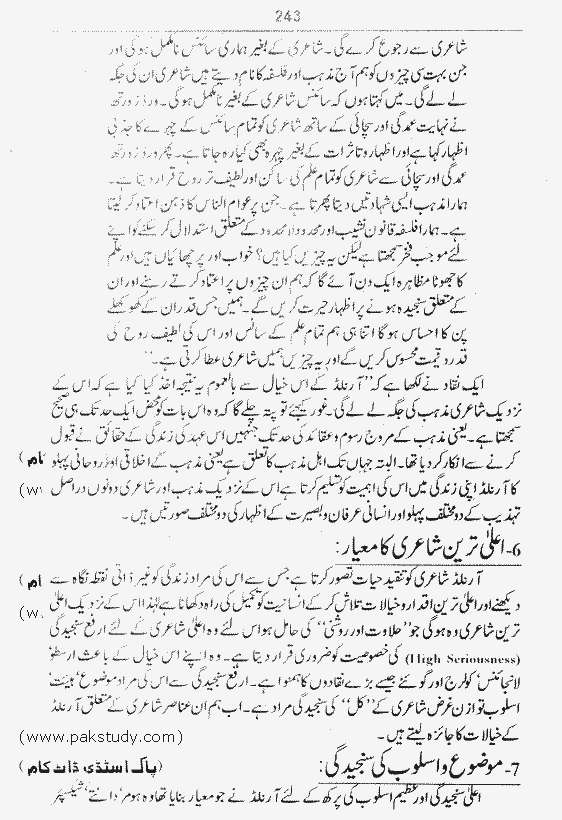 243
شاعری سے رجوع کرے گی۔ شاعری کے بغیر ہماری سائنس نامکمل ہوگی اور
جن بہت سی چیزوں کو ہم آج مذہب اور فلسفہ کا نام دیتے ہیں شاعری ان کی جگہ
لے لے گی۔ میں کہتا ہوں کہ سائنس شاعری کے بغیر نامکمل ہوگی۔ ورڈزورتھ
نے نہایت عمدگی اور سچائی کے ساتھ شاعری کو تمام سائنس کے چہرے کا جذباتی
اظہار کہا ہے اور اظہار و تاثرات کے بغیر چہرہ بھی کیا رہ جاتا ہے۔ پھر ورڈزورتھ
عمدگی اور سچائی سے شاعری کو تمام علم کی سانس اور لطیف تر روح قرار دیتا ہے۔
ہمارا مذہب ایسی شہادتیں دیتا پھرتا ہے۔ جن پر عوام الناس کا ذہن اعتماد کر لیتا
ہے۔ ہمارا فلسفہ قانون نشیب اور محدود و لامحدود کے متعلق استدلال کر سکنے کو اپنے
لئے موجب فخر سمجھتا ہے لیکن یہ چیزیں کیا ہیں؟ خواب اور پرچھائیاں ہیں اور علم
کا جھوٹا مظاہرہ ایک دن آئے گا کہ ہم ان چیزوں پر اعتماد کرتے رہنے اور ان
کے متعلق سنجیدہ ہونے پر اظہار حیرت کریں گے۔ ہمیں جس قدر ان کے کھوکھلے
پن کا احساس ہوگا اتنا ہی ہم تمام علم کے سانس اور اس کی لطیف روح کی
قدر و قیمت محسوس کریں گے اور یہ چیزیں ہمیں شاعری عطا کرتی ہے۔"
ایک نقاد نے لکھا ہے کہ "آرنلڈ کے اس خیال سے بالعموم یہ نتیجہ اخذ کیا گیا ہے کہ اس کے
نزدیک شاعری مذہب کی جگہ لے لے گی۔ غور کیجئے تو پتہ چلے گا کہ وہ اس بات کو محض ایک حد تک ہی صحیح
سمجھتا ہے۔ یعنی مذہب کے مروج رسوم و عقائد کی حد تک جنہیں اس عہد کی زندگی کے حقائق نے قبول
کرنے سے انکار کر دیا تھا۔ البتہ جہاں تک اہل مذہب کا تعلق ہے یعنی مذہب کے اخلاقی اور روحانی پہلو کام)
کا آرنلڈ اپنی زندگی میں اس کی اہمیت کو تسلیم کرتا ہے اس کے نزدیک مذہب اور شاعری دونوں دراصل (w
تہذیب کے دو مختلف پہلو اور انسانی عرفان و بصیرت کے اظہار کی دو مختلف صورتیں ہیں۔
6- اعلیٰ ترین شاعری کا معیار:
آرنلڈ شاعری کو تنقید حیات تصور کرتا ہے جس سے اس کی مراد زندگی کو غیر ذاتی نقطہ نگاہ سے ام)
دیکھنے اور اعلیٰ ترین اقدار و خیالات تلاش کر کے انسانیت کو تکمیل کی راہ دکھانا ہے لہٰذا اس کے نزدیک اعلیٰ (w
ترین شاعری وہ ہوگی جو "حلاوت اور روشنی" کی حامل ہو اس لئے وہ اعلیٰ شاعری کے لئے ارفع سنجیدگی
(High Seriousness) کی خصوصیت کو ضروری قرار دیتا ہے۔ وہ اپنے اس خیال کے باعث ارسطو'
لانجائنس' کولرج اور گوئٹے جیسے بڑے نقادوں کا ہمنوا ہے۔ ارفع سنجیدگی سے اس کی مراد موضوع' ہیئت'
اسلوب توازن غرض شاعری کے "کل" کی سنجیدگی مراد ہے۔ اب ہم ان عناصر شاعری کے متعلق آرنلڈ
کے خیالات کا جائزہ لیتے ہیں۔ (www.pakstudy.com)
7- موضوع و اسلوب کی سنجیدگی: (پاک اسٹڈی ڈاٹ کام)
اعلیٰ سنجیدگی اور عظیم اسلوب کی پرکھ کے لئے آرنلڈ نے جو معیار بنایا تھا وہ ہومر' دانتے' شیکسپئر